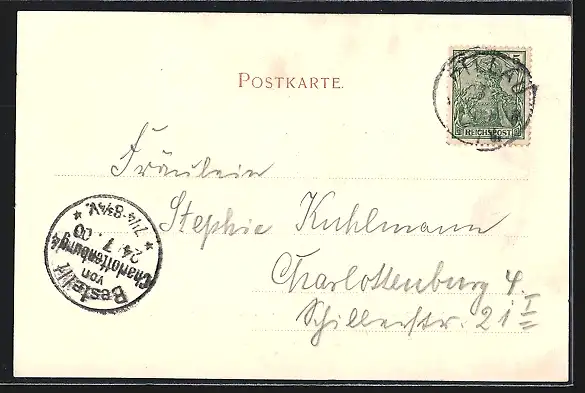 POSTKARTE.
5
PILLAU
REICHSPOST
Fräulein
Stephie Kuhlmann
Charlottenburg 4.
Schillerstr. 21 I
Bestellt
von
Charlottenburg 4
24/7.00
* 7¼-8¾V. *